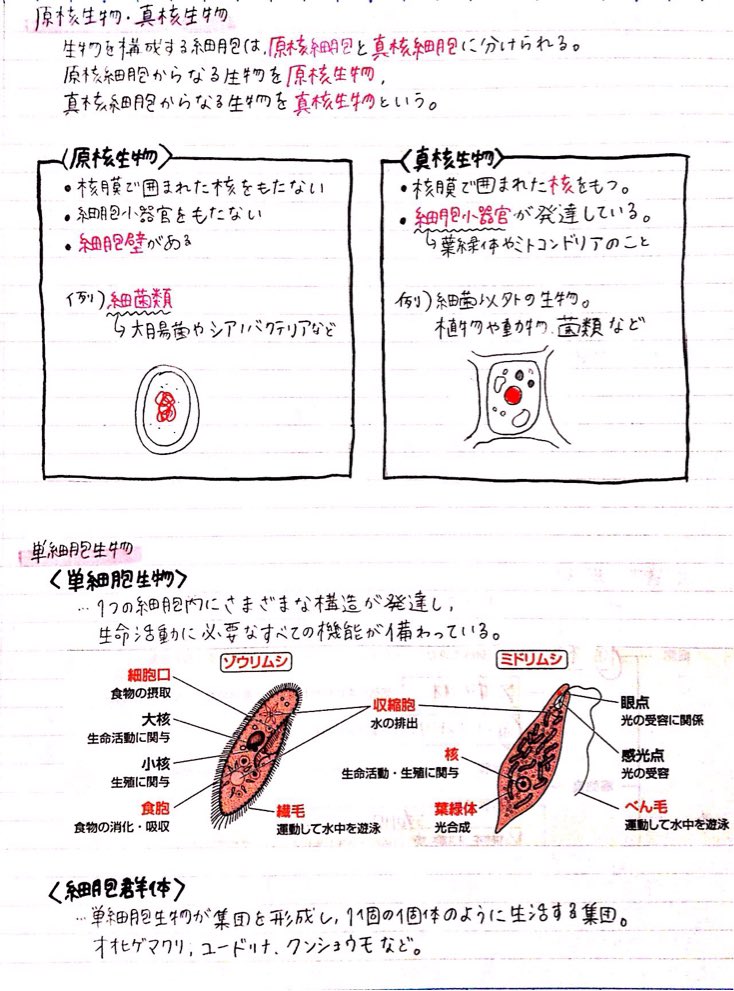 原核生物・真核生物
生物を構成する細胞は、原核細胞と真核細胞に分けられる。
原核細胞からなる生物を原核生物、
真核細胞からなる生物を真核生物という。
〈原核生物〉
•核膜で囲まれた核をもたない
•細胞小器官をもたない
•細胞壁がある
例）細菌類
↳大腸菌やシアノバクテリアなど
〈真核生物〉
•核膜で囲まれた核をもつ。
•細胞小器官が発達している。
↳葉緑体やミトコンドリアのこと
例）細菌以外の生物。
植物や動物、菌類など
単細胞生物
〈単細胞生物〉
…1つの細胞内にさまざまな構造が発達し、
生命活動に必要なすべての機能が備わっている。
ゾウリムシ
細胞口
食物の摂取
大核
生命活動に関与
小核
生殖に関与
食胞
食物の消化・吸収
繊毛
運動して水中を遊泳
収縮胞
水の排出
ミドリムシ
核
生命活動・生殖に関与
葉緑体
光合成
眼点
光の受容に関係
感光点
光の受容
べん毛
運動して水中を遊泳
〈細胞群体〉
…単細胞生物が集団を形成し、1個の個体のように生活する集団。
オオヒゲマワリ、ユードリナ、クンショウモなど。